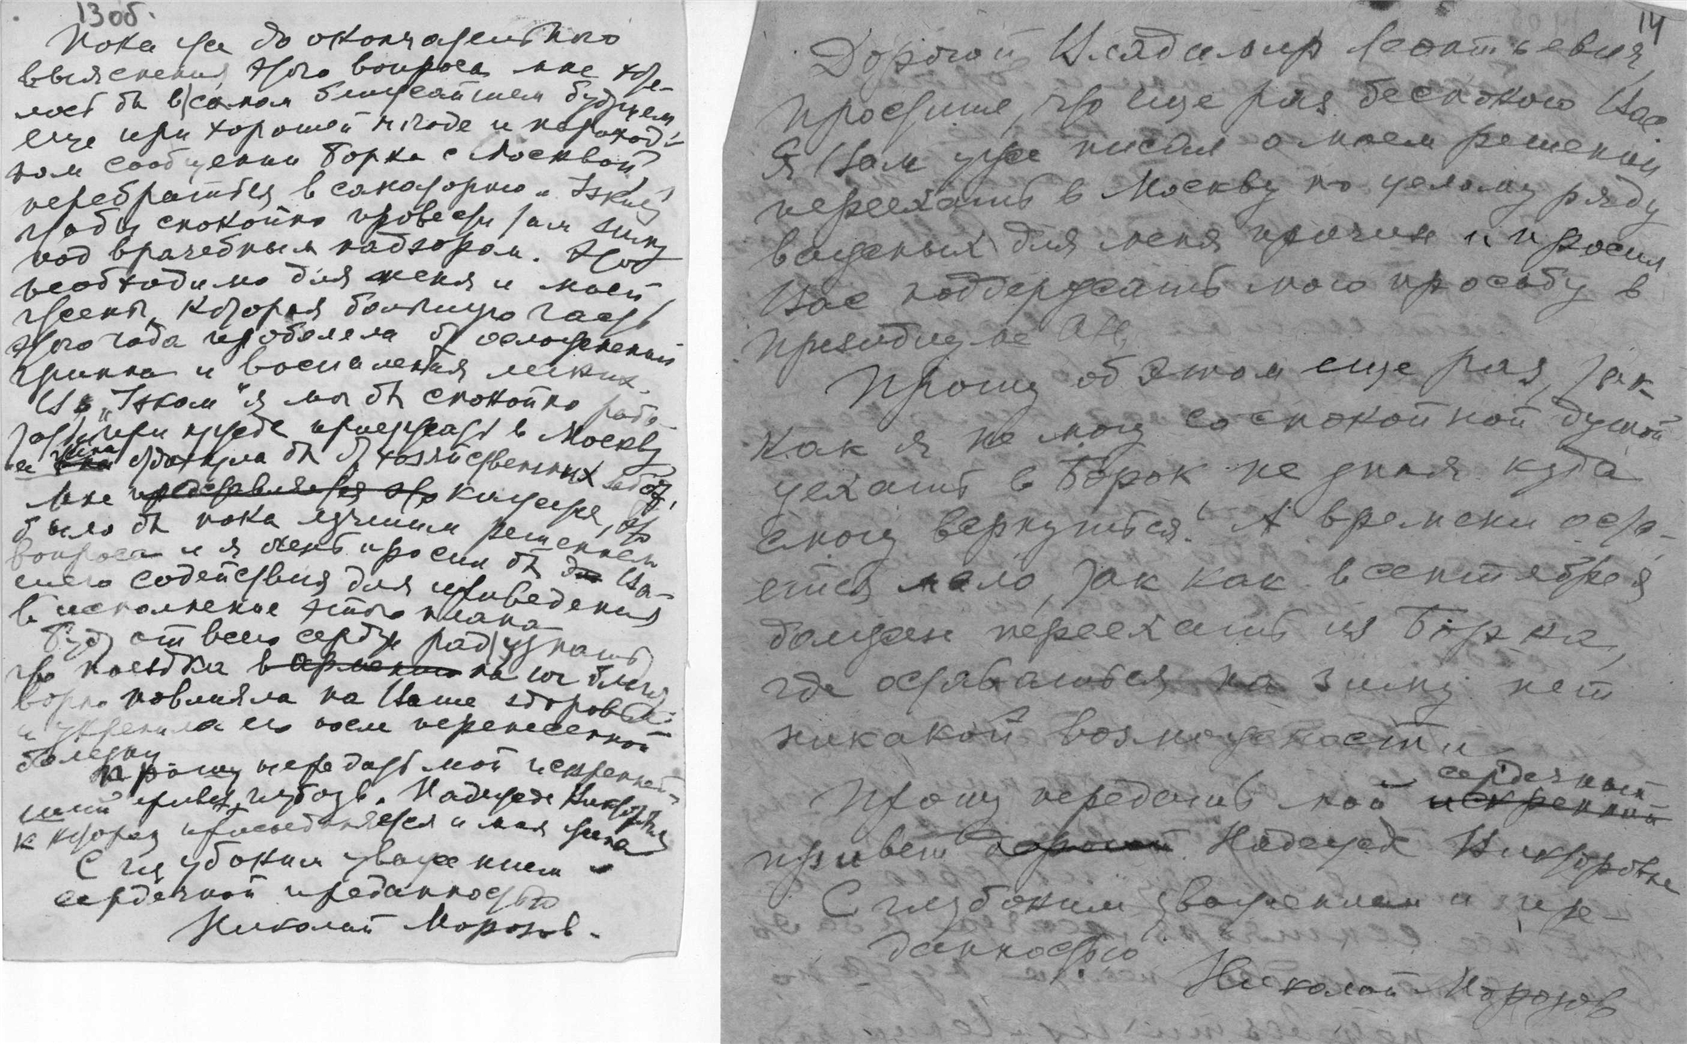 13 об.
Пока же до окончательного
выяснения этого вопроса мне хоте-
лось бы в самом ближайшем будущем
еще при хорошей погоде и пароход-
ном сообщении Борка с Москвой
перебраться в санаторию „Узкое"
чтобы спокойно провести там зиму
под врачебным надзором. Это
необходимо для меня и моей
жены, которая большую часть
этого года проболела от осложнений
гриппа и воспаления легких.
И в „Узком" я мог бы спокойно рабо-
тать при нужде приезжать в Москву
и жена отдохнула бы от хозяйственных забот.
Мне представляется что кажется, это
было бы пока лучшим решением
вопроса и я очень просил бы Ва-
шего содействия для приведения
в исполнение этого плана.
Буду от всего сердца рад узнать
что поездка в Армению на юг благо-
творно повлияла на Ваше здоровье
и укрепила его после перенесенной
болезни.
Прошу передать мой искренней-
ший привет Надежде Викторовне
к которой присоединяется и моя жена
С глубоким уважением и
сердечной преданностью
Николай Морозов.
14
Дорогой Владимир Леонтьевич,
простите, что еще раз беспокою Вас.
Я Вам уже писал о моем решении
переехать в Москву по целому ряду
важных для меня причин и просил
Вас поддержать мою просьбу в
Президиуме АН.
Прошу об этом еще раз, так
как я не могу со спокойной душой
уехать в Борок не зная куда
смогу вернуться. А времени оста-
ется мало, так как в сентябре я
должен переехать из Борка,
где оставаться на зиму нет
никакой возможности.
сердечный
Прошу передать мой искренний
привет дорогой Надежде Викторовне
С глубоким уважением и пре-
данностью
Николай Морозов